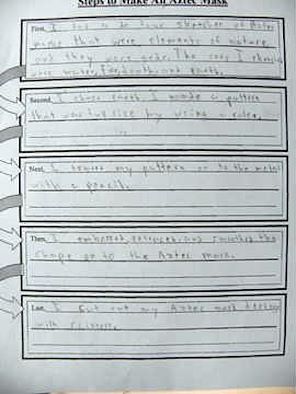 Steps to Make An Aztec Mask
First, I had to do four sketches of Aztec
masks that were elements of nature
and they were The ones I
were water, and earth.
Second, I chose earth I made a pattern
that was full size by using a ruler.
Next, I traced my pattern on to the metal
with a pencil.
Then, I embossed, and the
shape on to the Aztec mask.
Last, I cut out my Aztec mask
with scissors.